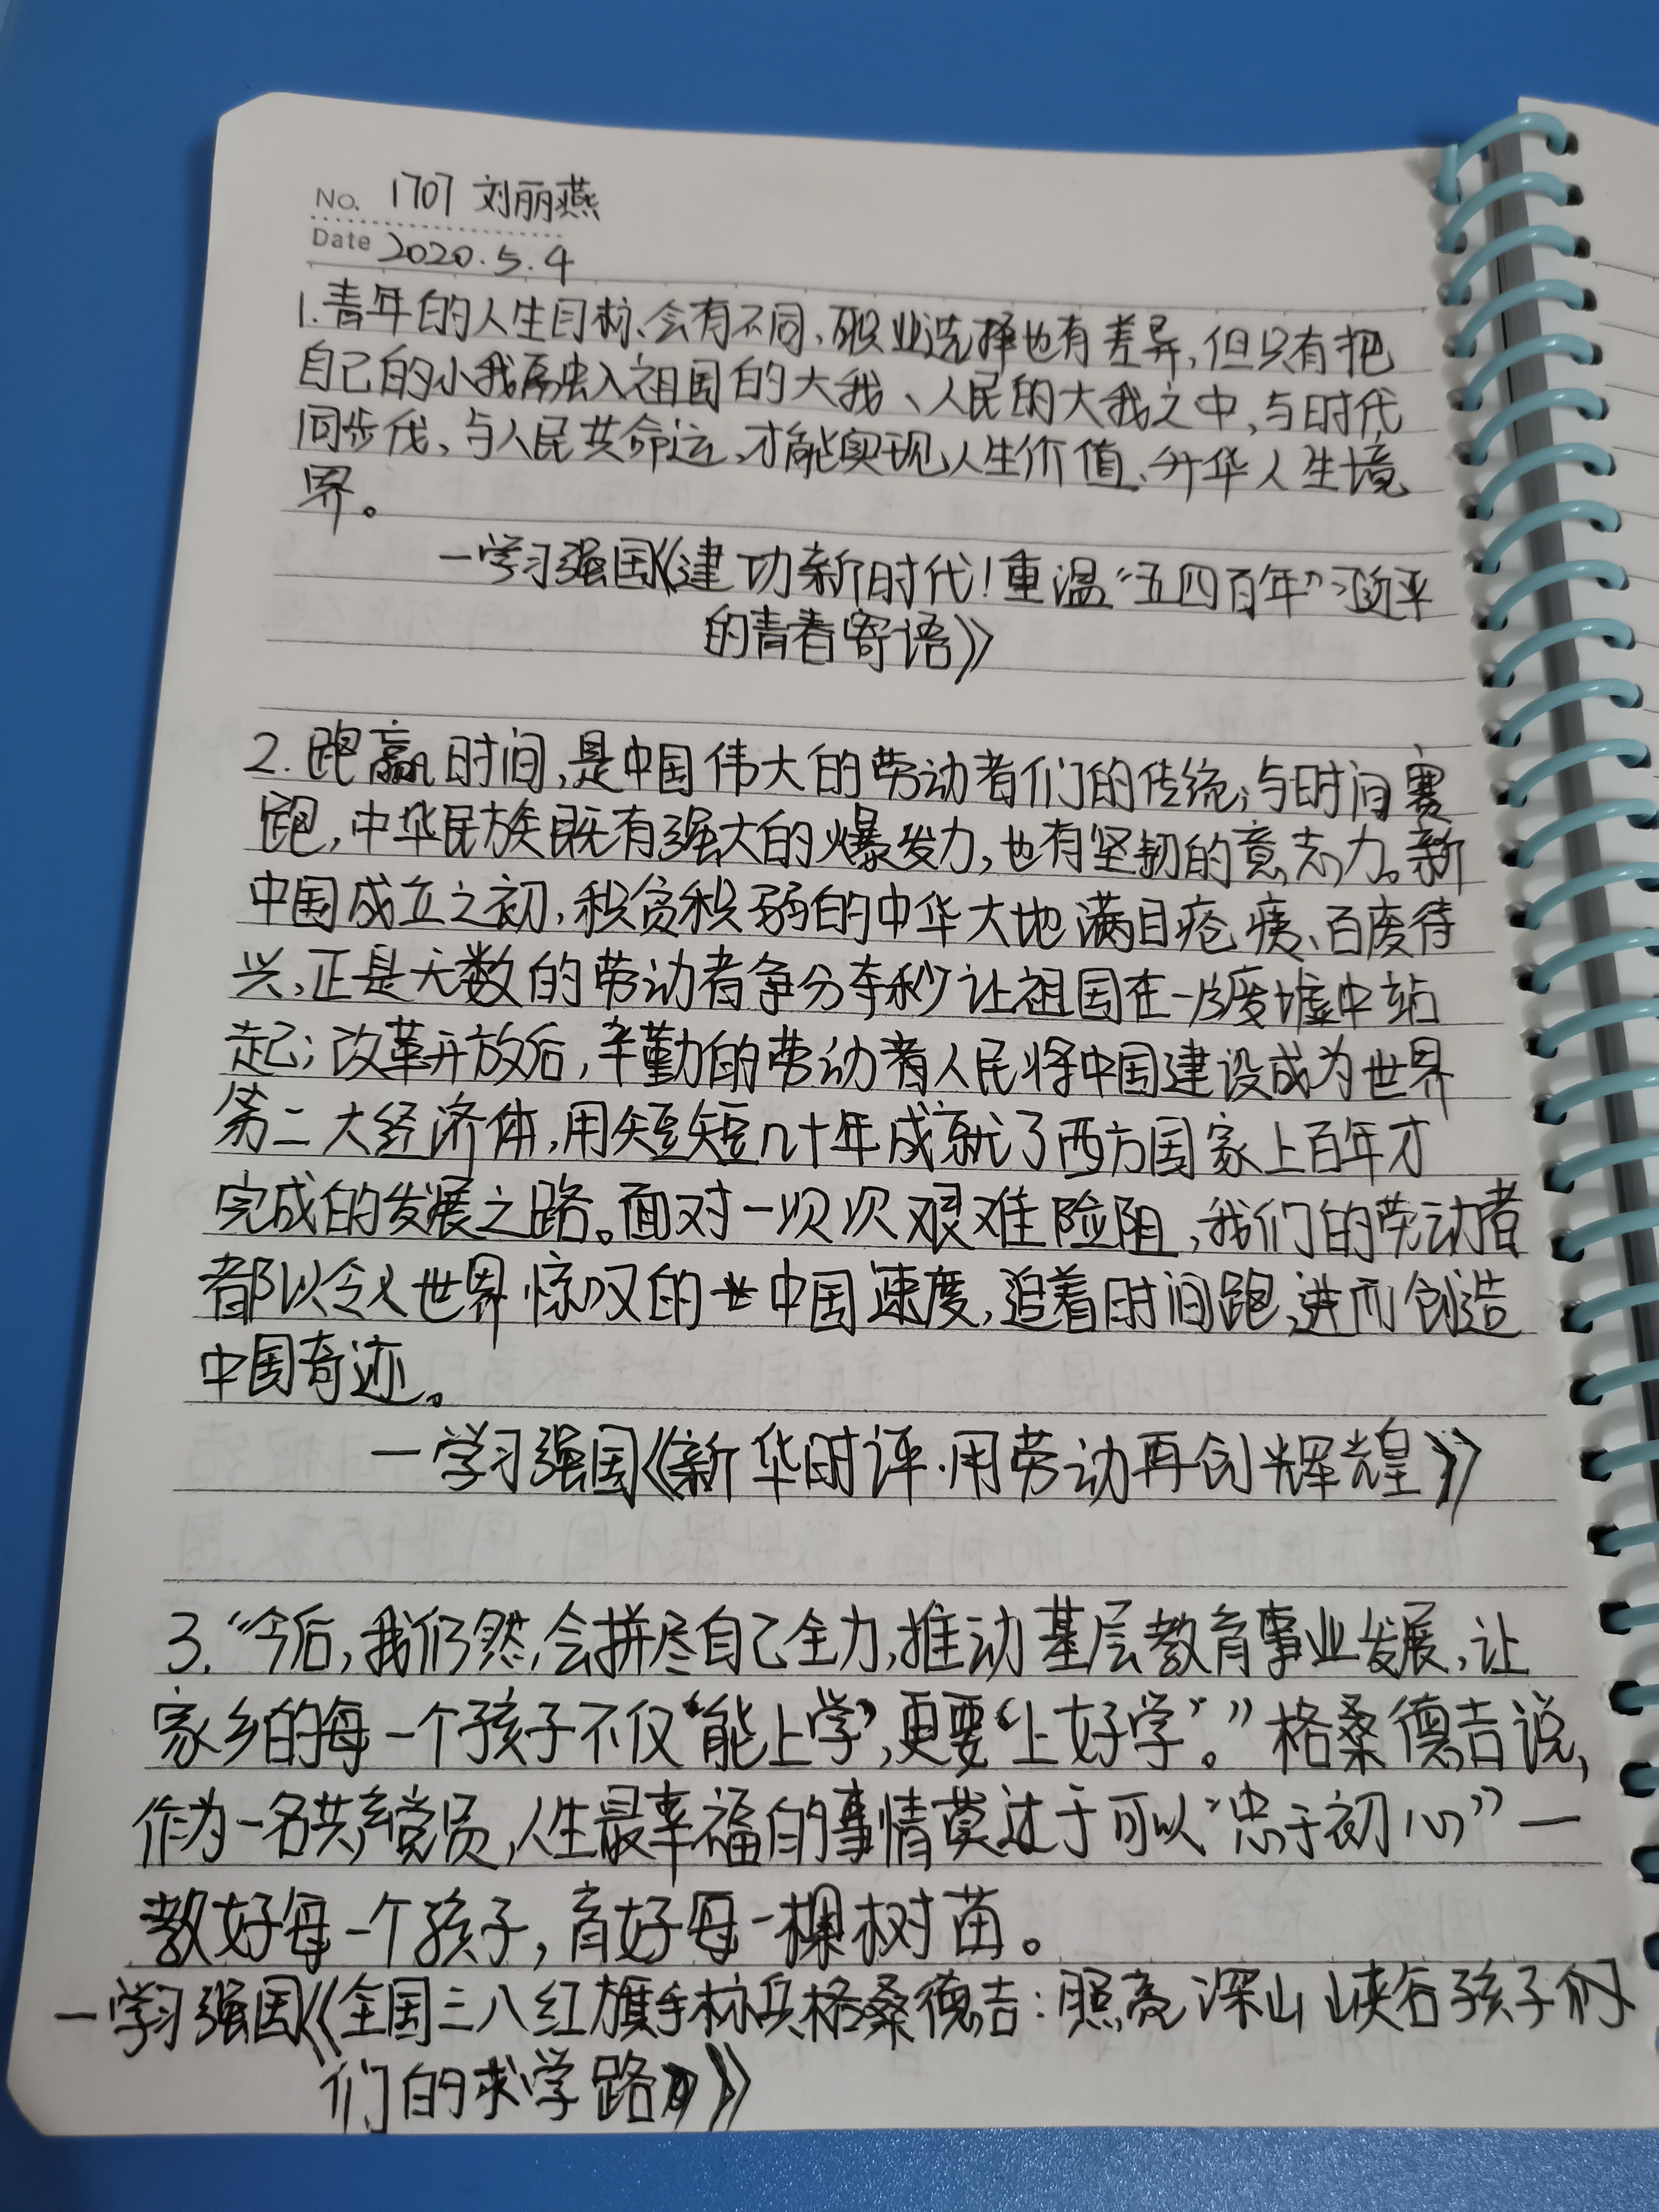 No. 1707 刘丽燕
Date 2020.5.4
1.青年的人生目标会有不同,职业选择也有差异,但只有把
自己的小我融入祖国的大我、人民的大我之中,与时代
同步伐,与人民共命运,才能实现人生价值、升华人生境
界。
—学习强国《建功新时代!重温“五四百年”习近平
的青春寄语》
2.跑赢时间,是中国伟大的劳动者们的传统;与时间赛
跑,中华民族既有强大的爆发力,也有坚韧的意志力。新
中国成立之初,积贫积弱的中华大地满目疮痍、百废待
兴,正是无数的劳动者争分夺秒让祖国在一片废墟中站
起;改革开放后,辛勤的劳动者人民将中国建设成为世界
第二大经济体,用短短几十年成就了西方国家上百年才
完成的发展之路。面对一次次艰难险阻,我们的劳动者
都以令人世界惊叹的中国速度,追着时间跑,进而创造
中国奇迹。
—学习强国《新华时评·用劳动再创辉煌》
3.“今后,我仍然会拼尽自己全力,推动基层教育事业发展,让
家乡的每一个孩子不仅“能上学”,更要“上好学”。”格桑德吉说,
作为一名共产党员,人生最幸福的事情莫过于可以“忠于初心”—
教好每一个孩子,育好每一棵树苗。
—学习强国《全国三八红旗手标兵格桑德吉:照亮深山峡谷孩子们
们的求学路》